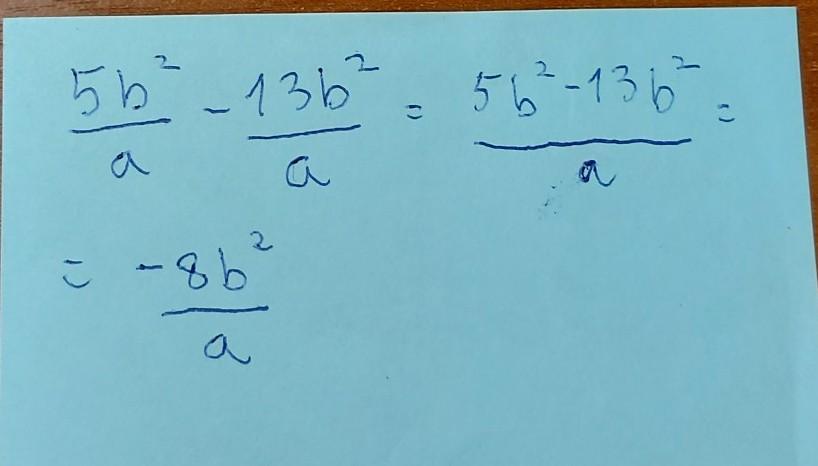 5b²/a - 13b²/a = (5b² - 13b²)/a =
= -8b²/a